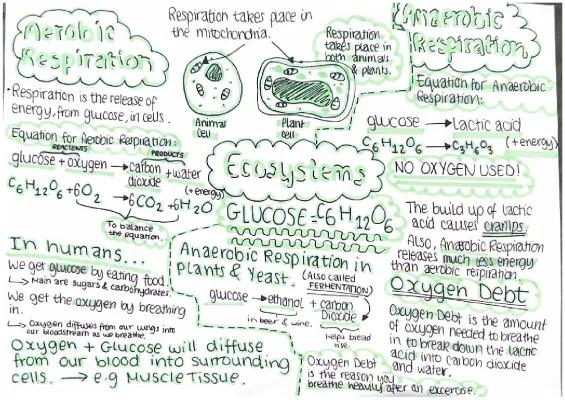 Aerobic
Respiration
• Respiration is the release of
energy, from glucose, in cells.
Equation for Aerobic Respiration:
REACTENTS
PRODUCTS
glucose + oxygen → carbon + water
dioxide
(+energy)
C6H12O6 + 6O2 → 6CO2 + 6H2O
To balance
the equation.
In humans...
We get glucose by eating food.
↳ Main are sugars & carbohydrates.
We get the oxygen by breathing
in.
↳ Oxygen diffuses from our lungs into
our bloodstream as we breathe.
Oxygen + Glucose will diffuse
from our blood into surrounding
cells. → e.g Muscle Tissue.
Respiration takes place in
the mitochondria.
Animal
cell
Plant
cell
Respiration
takes place in
both animals
& plants.
Ecosystems
GLUCOSE = C6H12O6
Anaerobic Respiration in
Plants & Yeast.
(Also called
FERMENTATION)
glucose → ethanol + carbon
Dioxide
in beer & wine.
helps bread
rise.
Oxygen Debt
is the reason you
breathe heavily after an excerose.
Anaerobic
Respiration
Equation for Anaerobic
Respiration:
glucose → Lactic acid
C6H12O6 → C3H6O3 (+energy)
NO OXYGEN USED!
The build up of lactic
acid causes cramps.
Also, Anaerobic Respiration
releases much less energy
than aerobic respiration
Oxygen Debt
Oxygen Debt is the amount
of oxygen needed to breathe
in to break down the lactic
acid into carbon dioxide
and water.